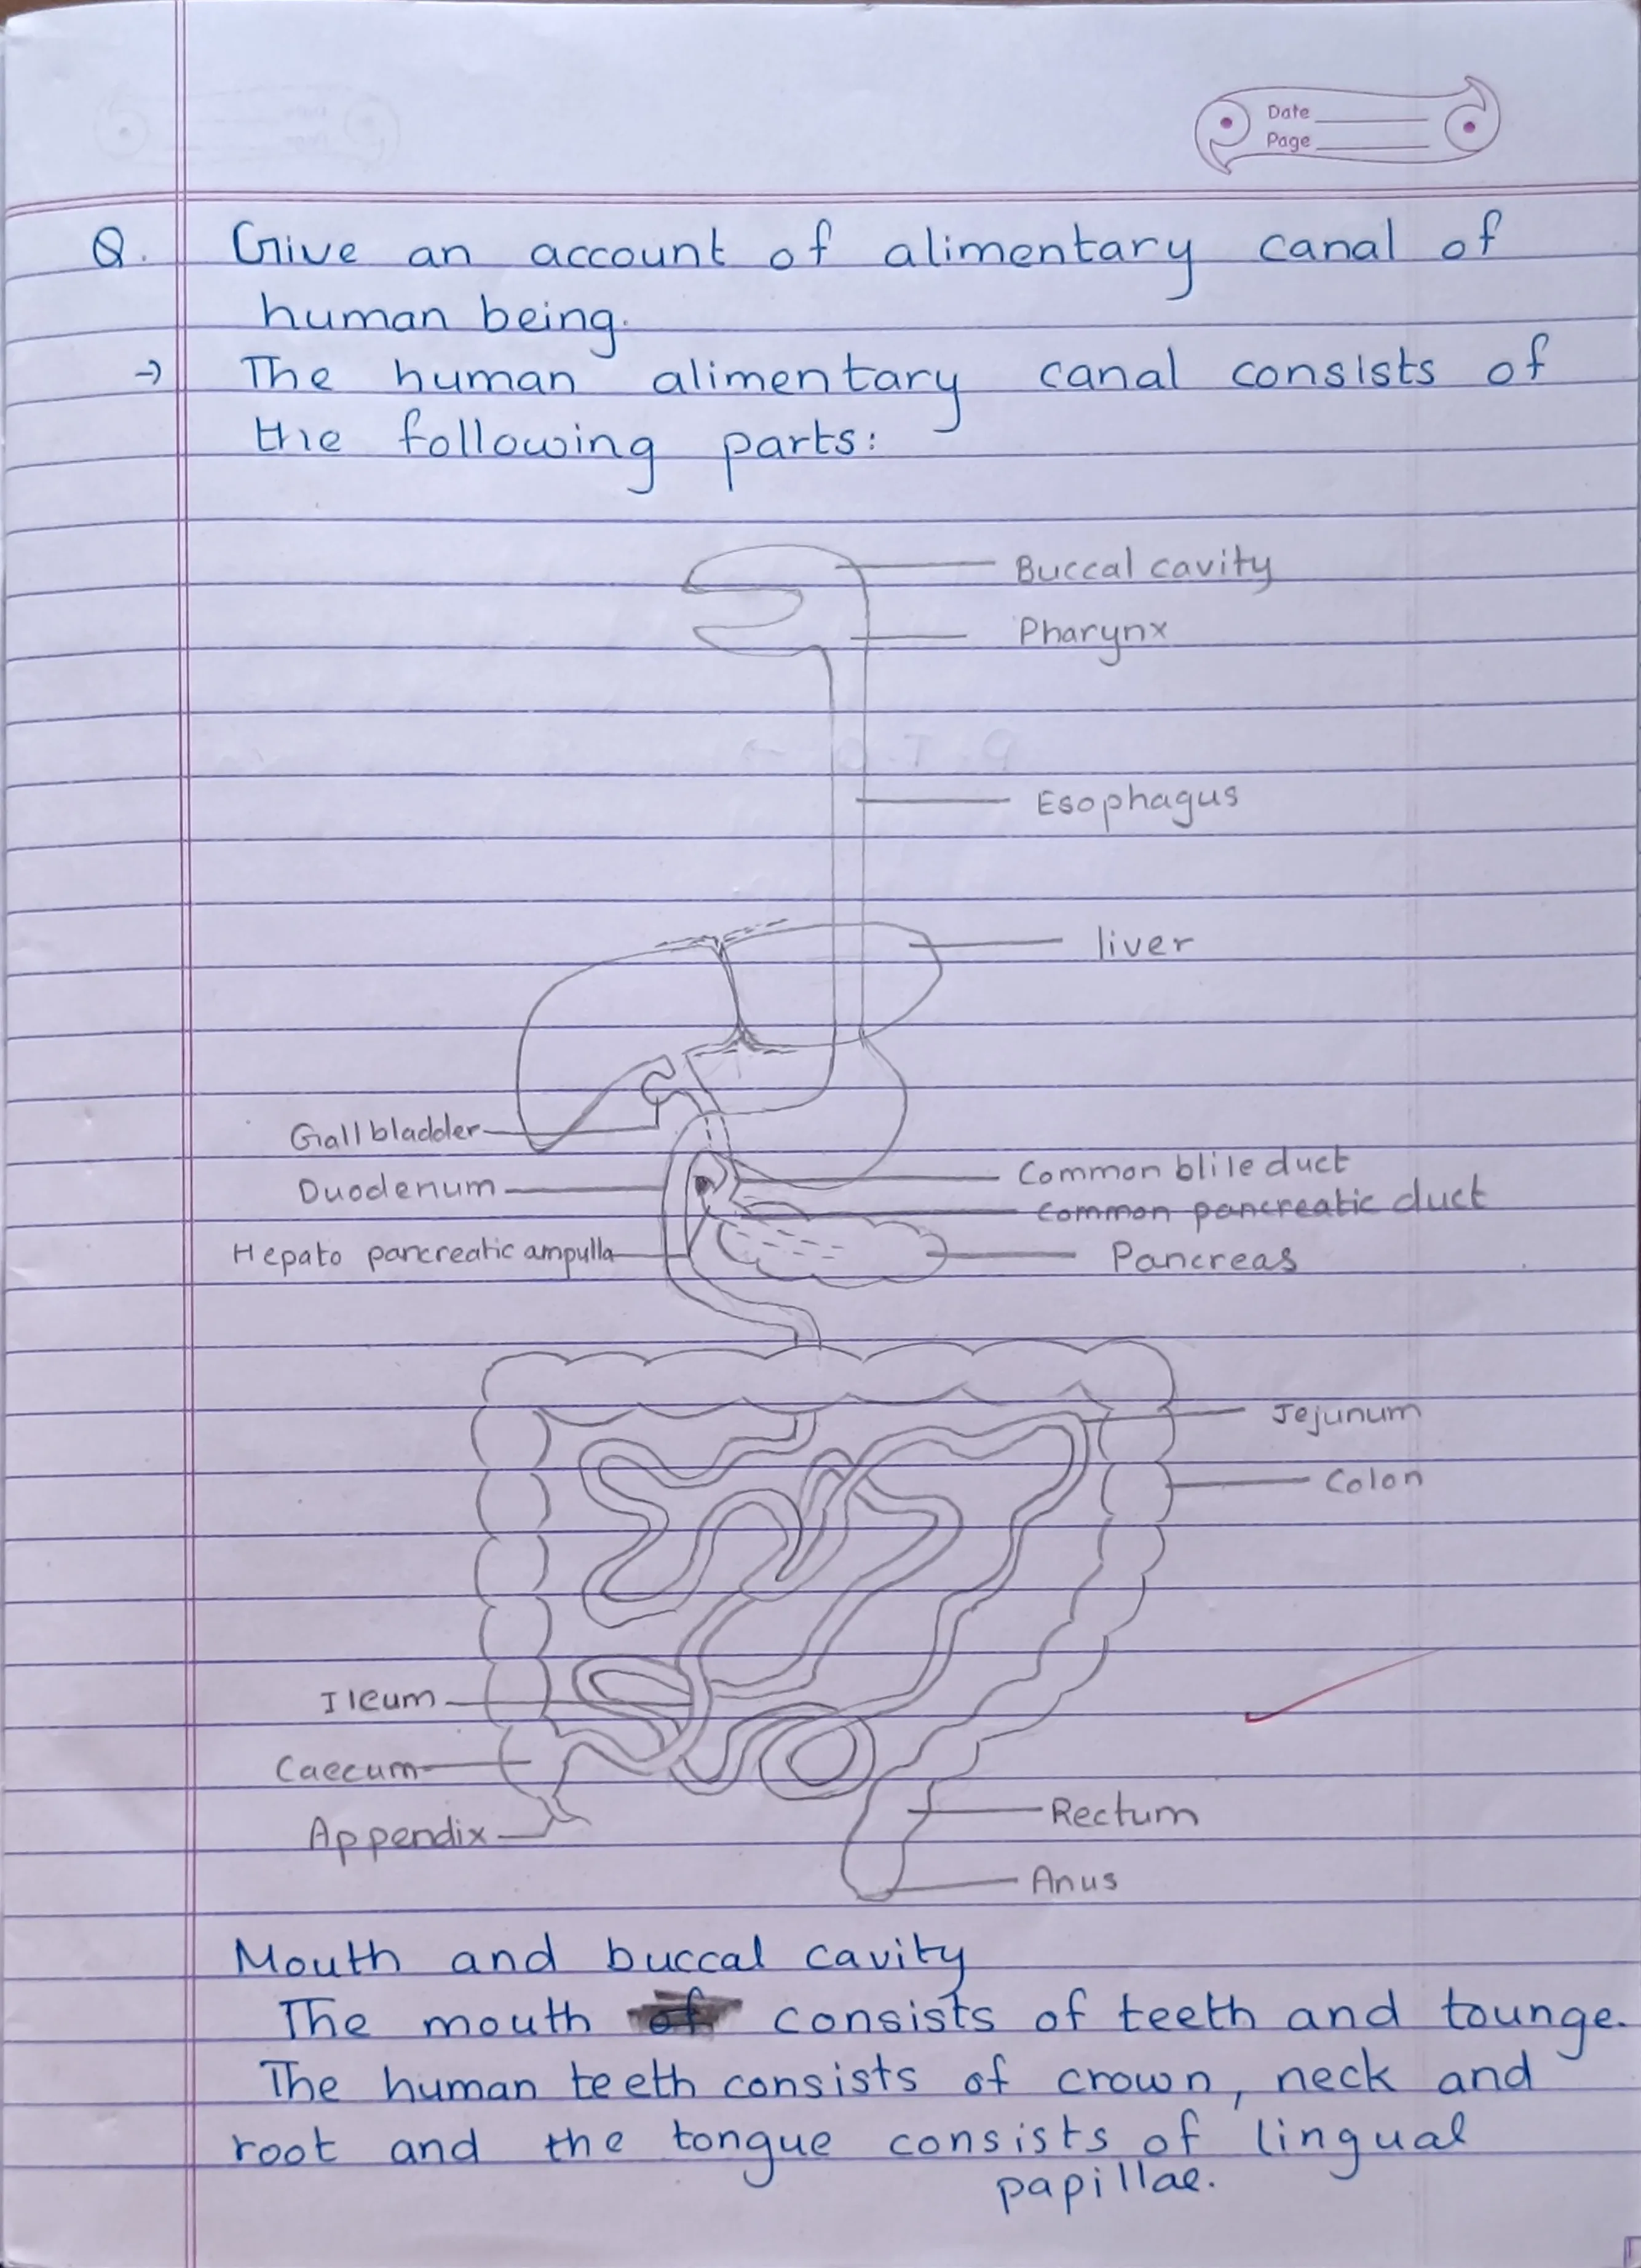 Date
Page
Q. Give an account of alimentary canal of
human being.
→ The human alimentary canal consists of
the following parts:
Buccal cavity
Pharynx
P.T.O →
Esophagus
liver
Gallbladder
Common blile duct
Duodenum
common pancreatic duct
Hepato pancreatic ampulla
Pancreas
Jejunum
Colon
Ileum
Caecum
Rectum
Appendix
Anus
Mouth and buccal cavity
The mouth of consists of teeth and tounge.
The human teeth consists of crown, neck and
root and the tongue consists of lingual
papillae.